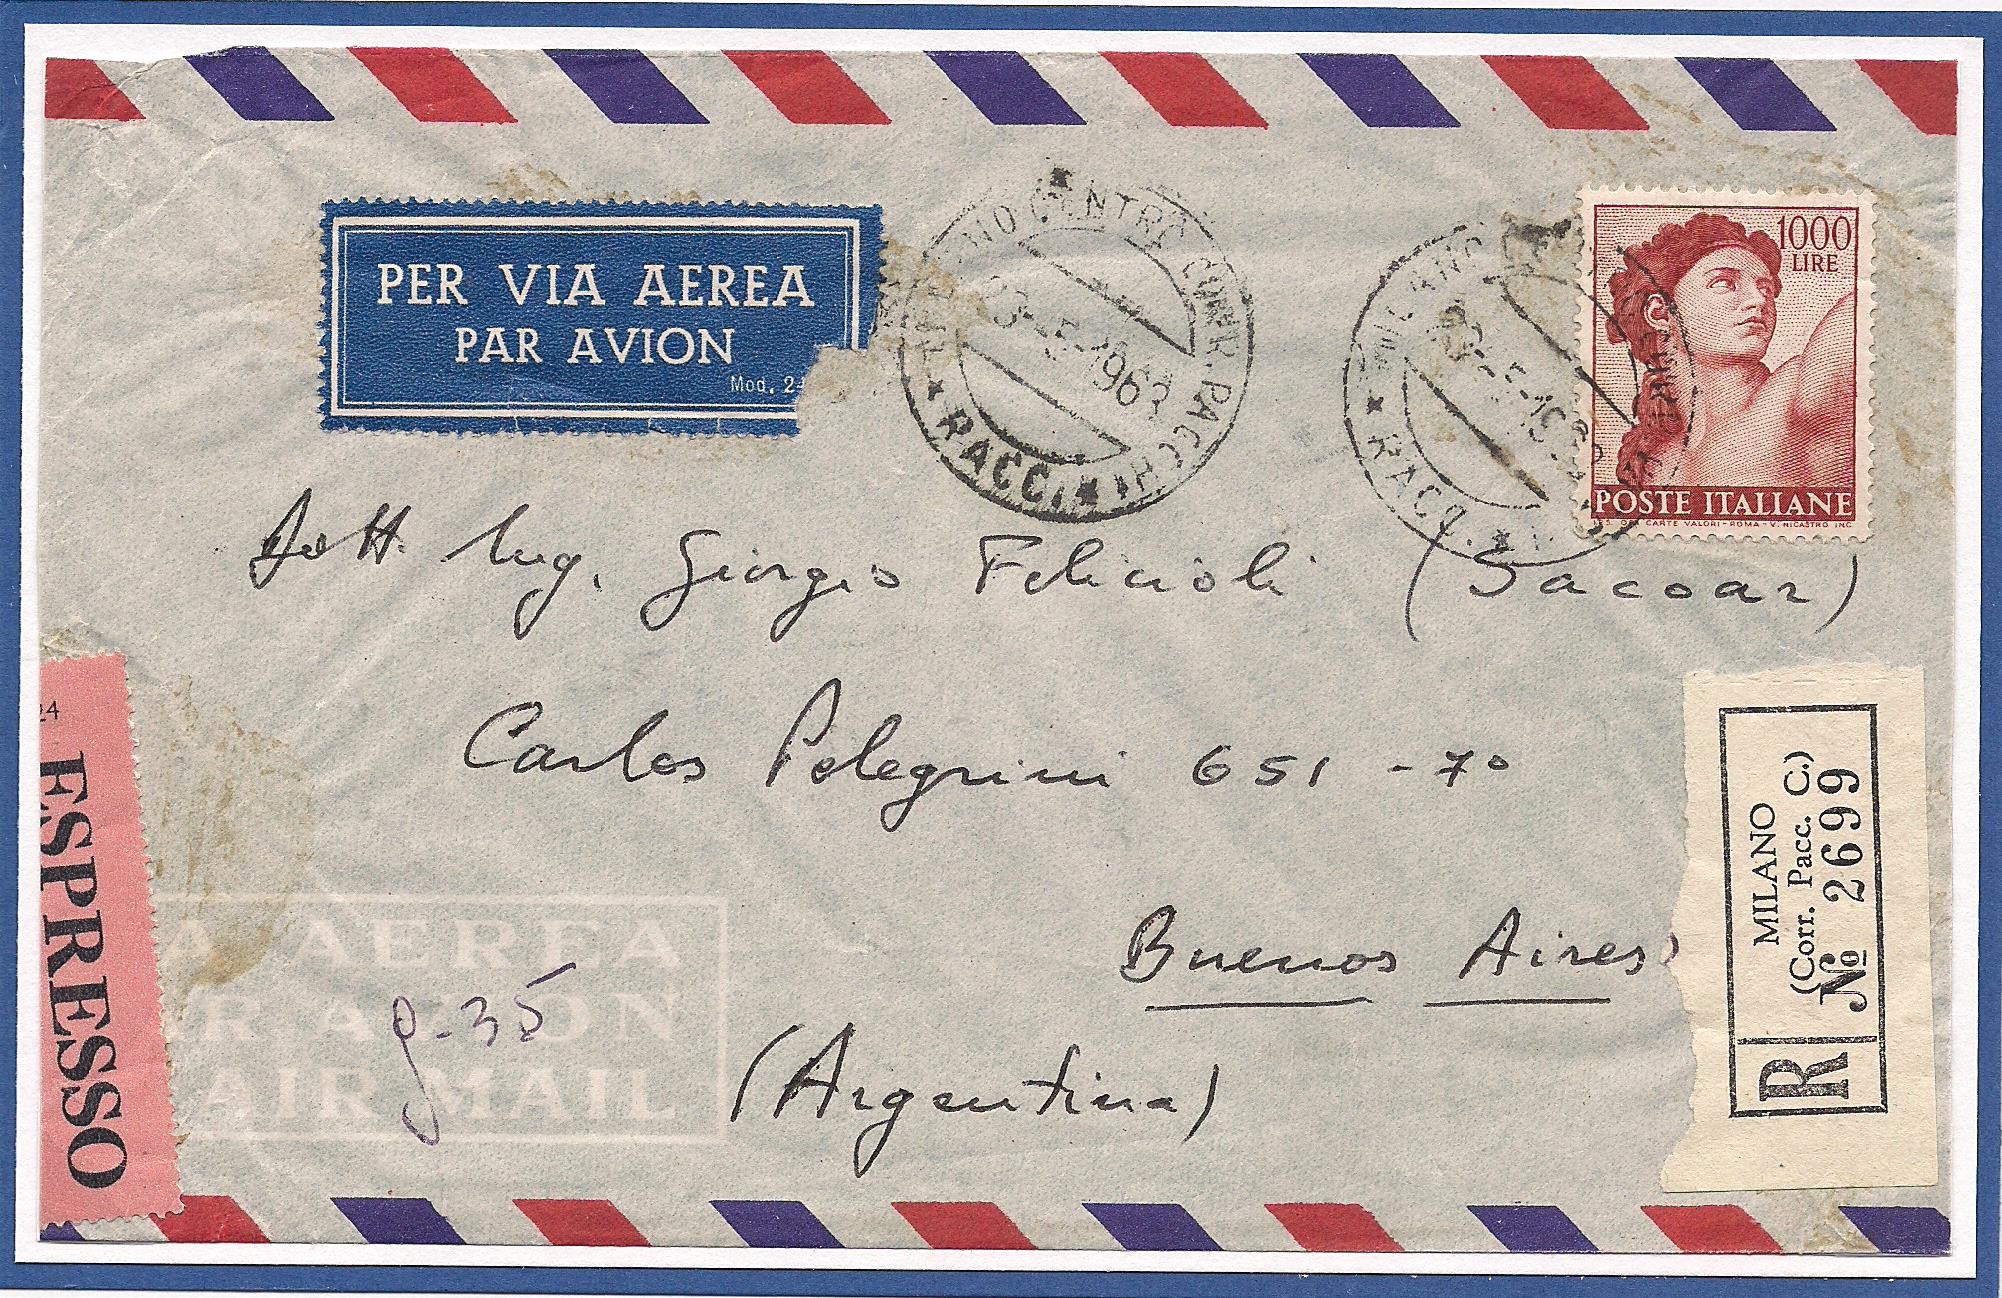 PER VIA AEREA
PAR AVION
Mod. 24
MILANO CENTRO CORR. PACCHI
-5-196
RACC.
MILANO
-5-196
RACC.
1000
LIRE
POSTE ITALIANE
CARTE VALORI - ROMA - V. NICASTRO INC.
Dott. Ing. Giorgio Felicioli (Sacoar)
Carlos Pelegrini 651 - 7º
Buenos Aires
(Argentina)
24
ESPRESSO
A AEREA
R AVION
AIR MAIL
g-35
MILANO
(Corr. Pacc. C.)
R Nº 2699